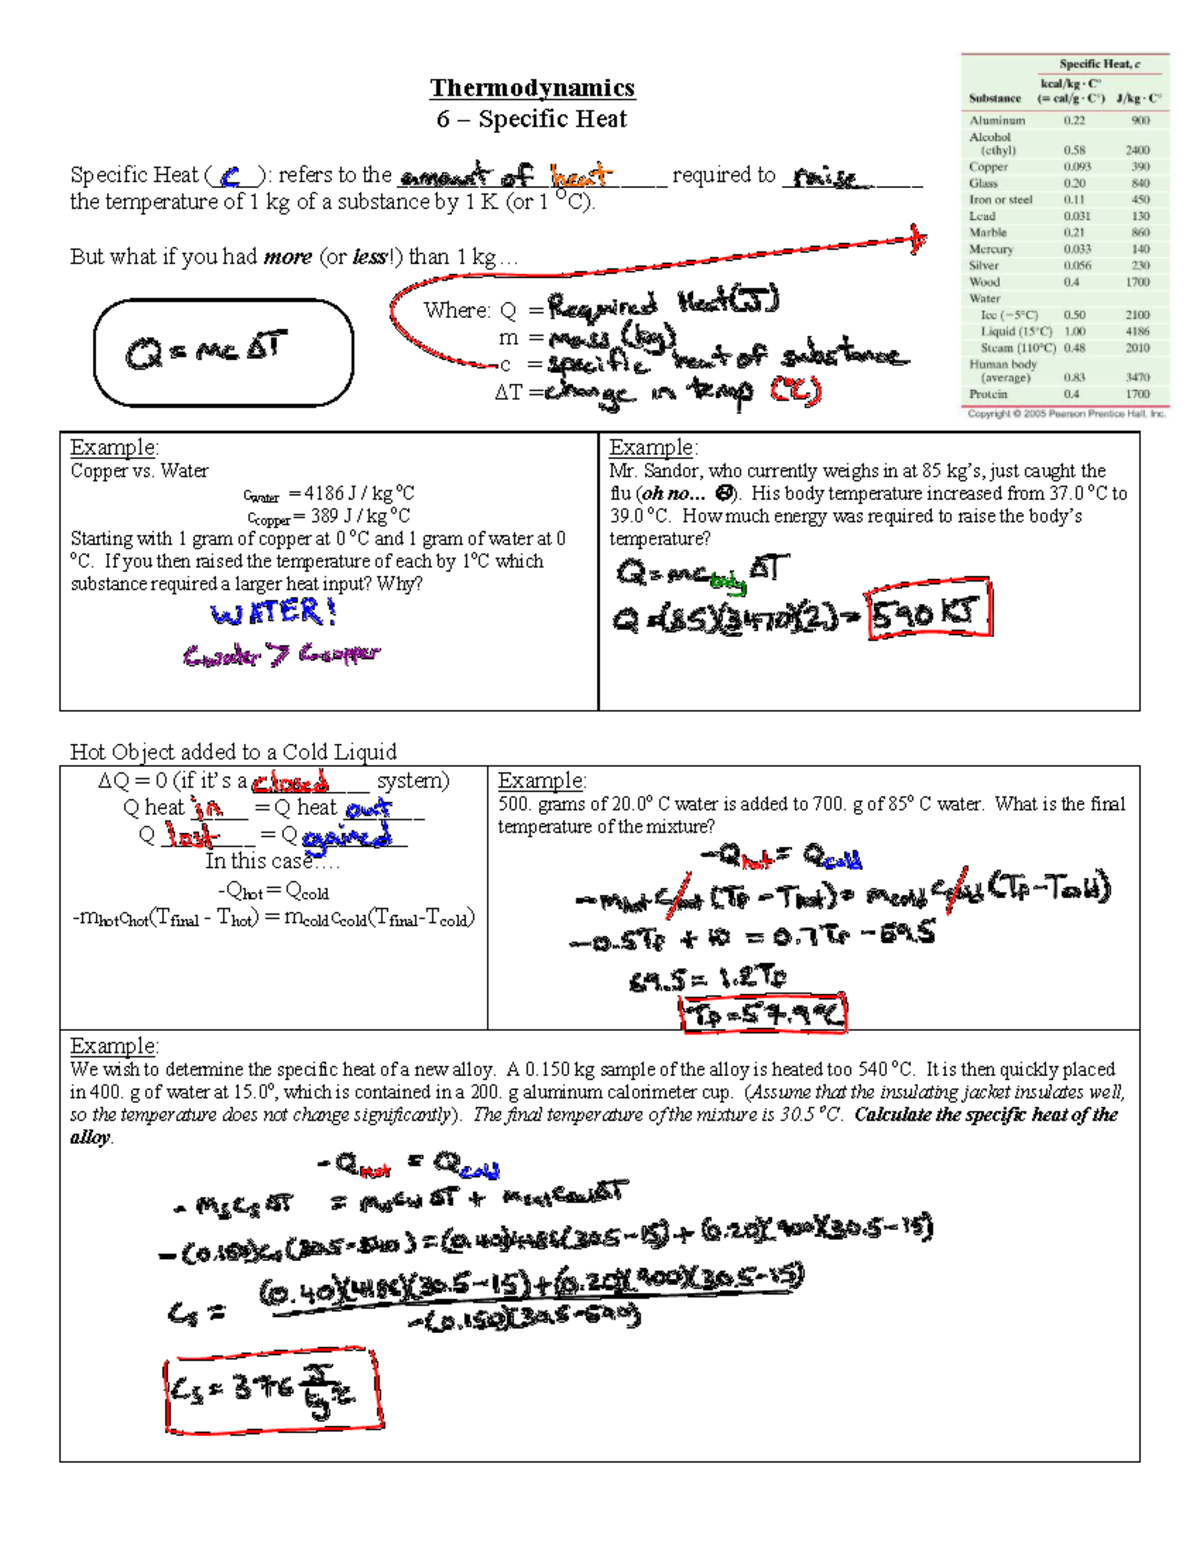 Thermodynamics
6 – Specific Heat
Specific Heat, c
kcal/kg · C°
Substance (= cal/g · C°) J/kg · C°
Aluminum 0.22 900
Alcohol
(ethyl) 0.58 2400
Copper 0.093 390
Glass 0.20 840
Iron or steel 0.11 450
Lead 0.031 130
Marble 0.21 860
Mercury 0.033 140
Silver 0.056 230
Wood 0.4 1700
Water
Ice (−5°C) 0.50 2100
Liquid (15°C) 1.00 4186
Steam (110°C) 0.48 2010
Human body
(average) 0.83 3470
Protein 0.4 1700
Copyright © 2005 Pearson Prentice Hall, Inc.
Specific Heat ( c ): refers to the amount of heat required to raise
the temperature of 1 kg of a substance by 1 K (or 1 °C).
But what if you had more (or less!) than 1 kg…
Q = mcΔT
Where: Q = Required Heat (J)
m = mass (kg)
c = specific heat of substance
ΔT = change in temp (°C)
Example:
Copper vs. Water
cwater = 4186 J / kg °C
ccopper = 389 J / kg °C
Starting with 1 gram of copper at 0 °C and 1 gram of water at 0
°C. If you then raised the temperature of each by 1°C which
substance required a larger heat input? Why?
WATER!
Cwater > Ccopper
Example:
Mr. Sandor, who currently weighs in at 85 kg's, just caught the
flu (oh no… ☹). His body temperature increased from 37.0 °C to
39.0 °C. How much energy was required to raise the body's
temperature?
Q = mcbody ΔT
Q = (85)(3470)(2) = 590 KJ
Hot Object added to a Cold Liquid
ΔQ = 0 (if it's a closed system)
Q heat in = Q heat out
Q lost = Q gained
In this case….
-Qhot = Qcold
-mhotchot(Tfinal - Thot) = mcoldccold(Tfinal-Tcold)
Example:
500. grams of 20.0° C water is added to 700. g of 85° C water. What is the final
temperature of the mixture?
-Qhot = Qcold
-mhot chot (TF - Thot) = mcold ccold (TF - Tcold)
-0.5TF + 10 = 0.7TF - 59.5
69.5 = 1.2TF
TF = 57.9°C
Example:
We wish to determine the specific heat of a new alloy. A 0.150 kg sample of the alloy is heated too 540 °C. It is then quickly placed
in 400. g of water at 15.0°, which is contained in a 200. g aluminum calorimeter cup. (Assume that the insulating jacket insulates well,
so the temperature does not change significantly). The final temperature of the mixture is 30.5 °C. Calculate the specific heat of the
alloy.
-Qhot = Qcold
-mscsΔT = mwcwΔT + mcalccalΔT
-(0.150)cs(30.5-540) = (0.40)(4186)(30.5-15) + (0.20)(900)(30.5-15)
cs = (0.40)(4186)(30.5-15) + (0.20)(900)(30.5-15)
-(0.150)(30.5-540)
cs = 376 J/kg°C